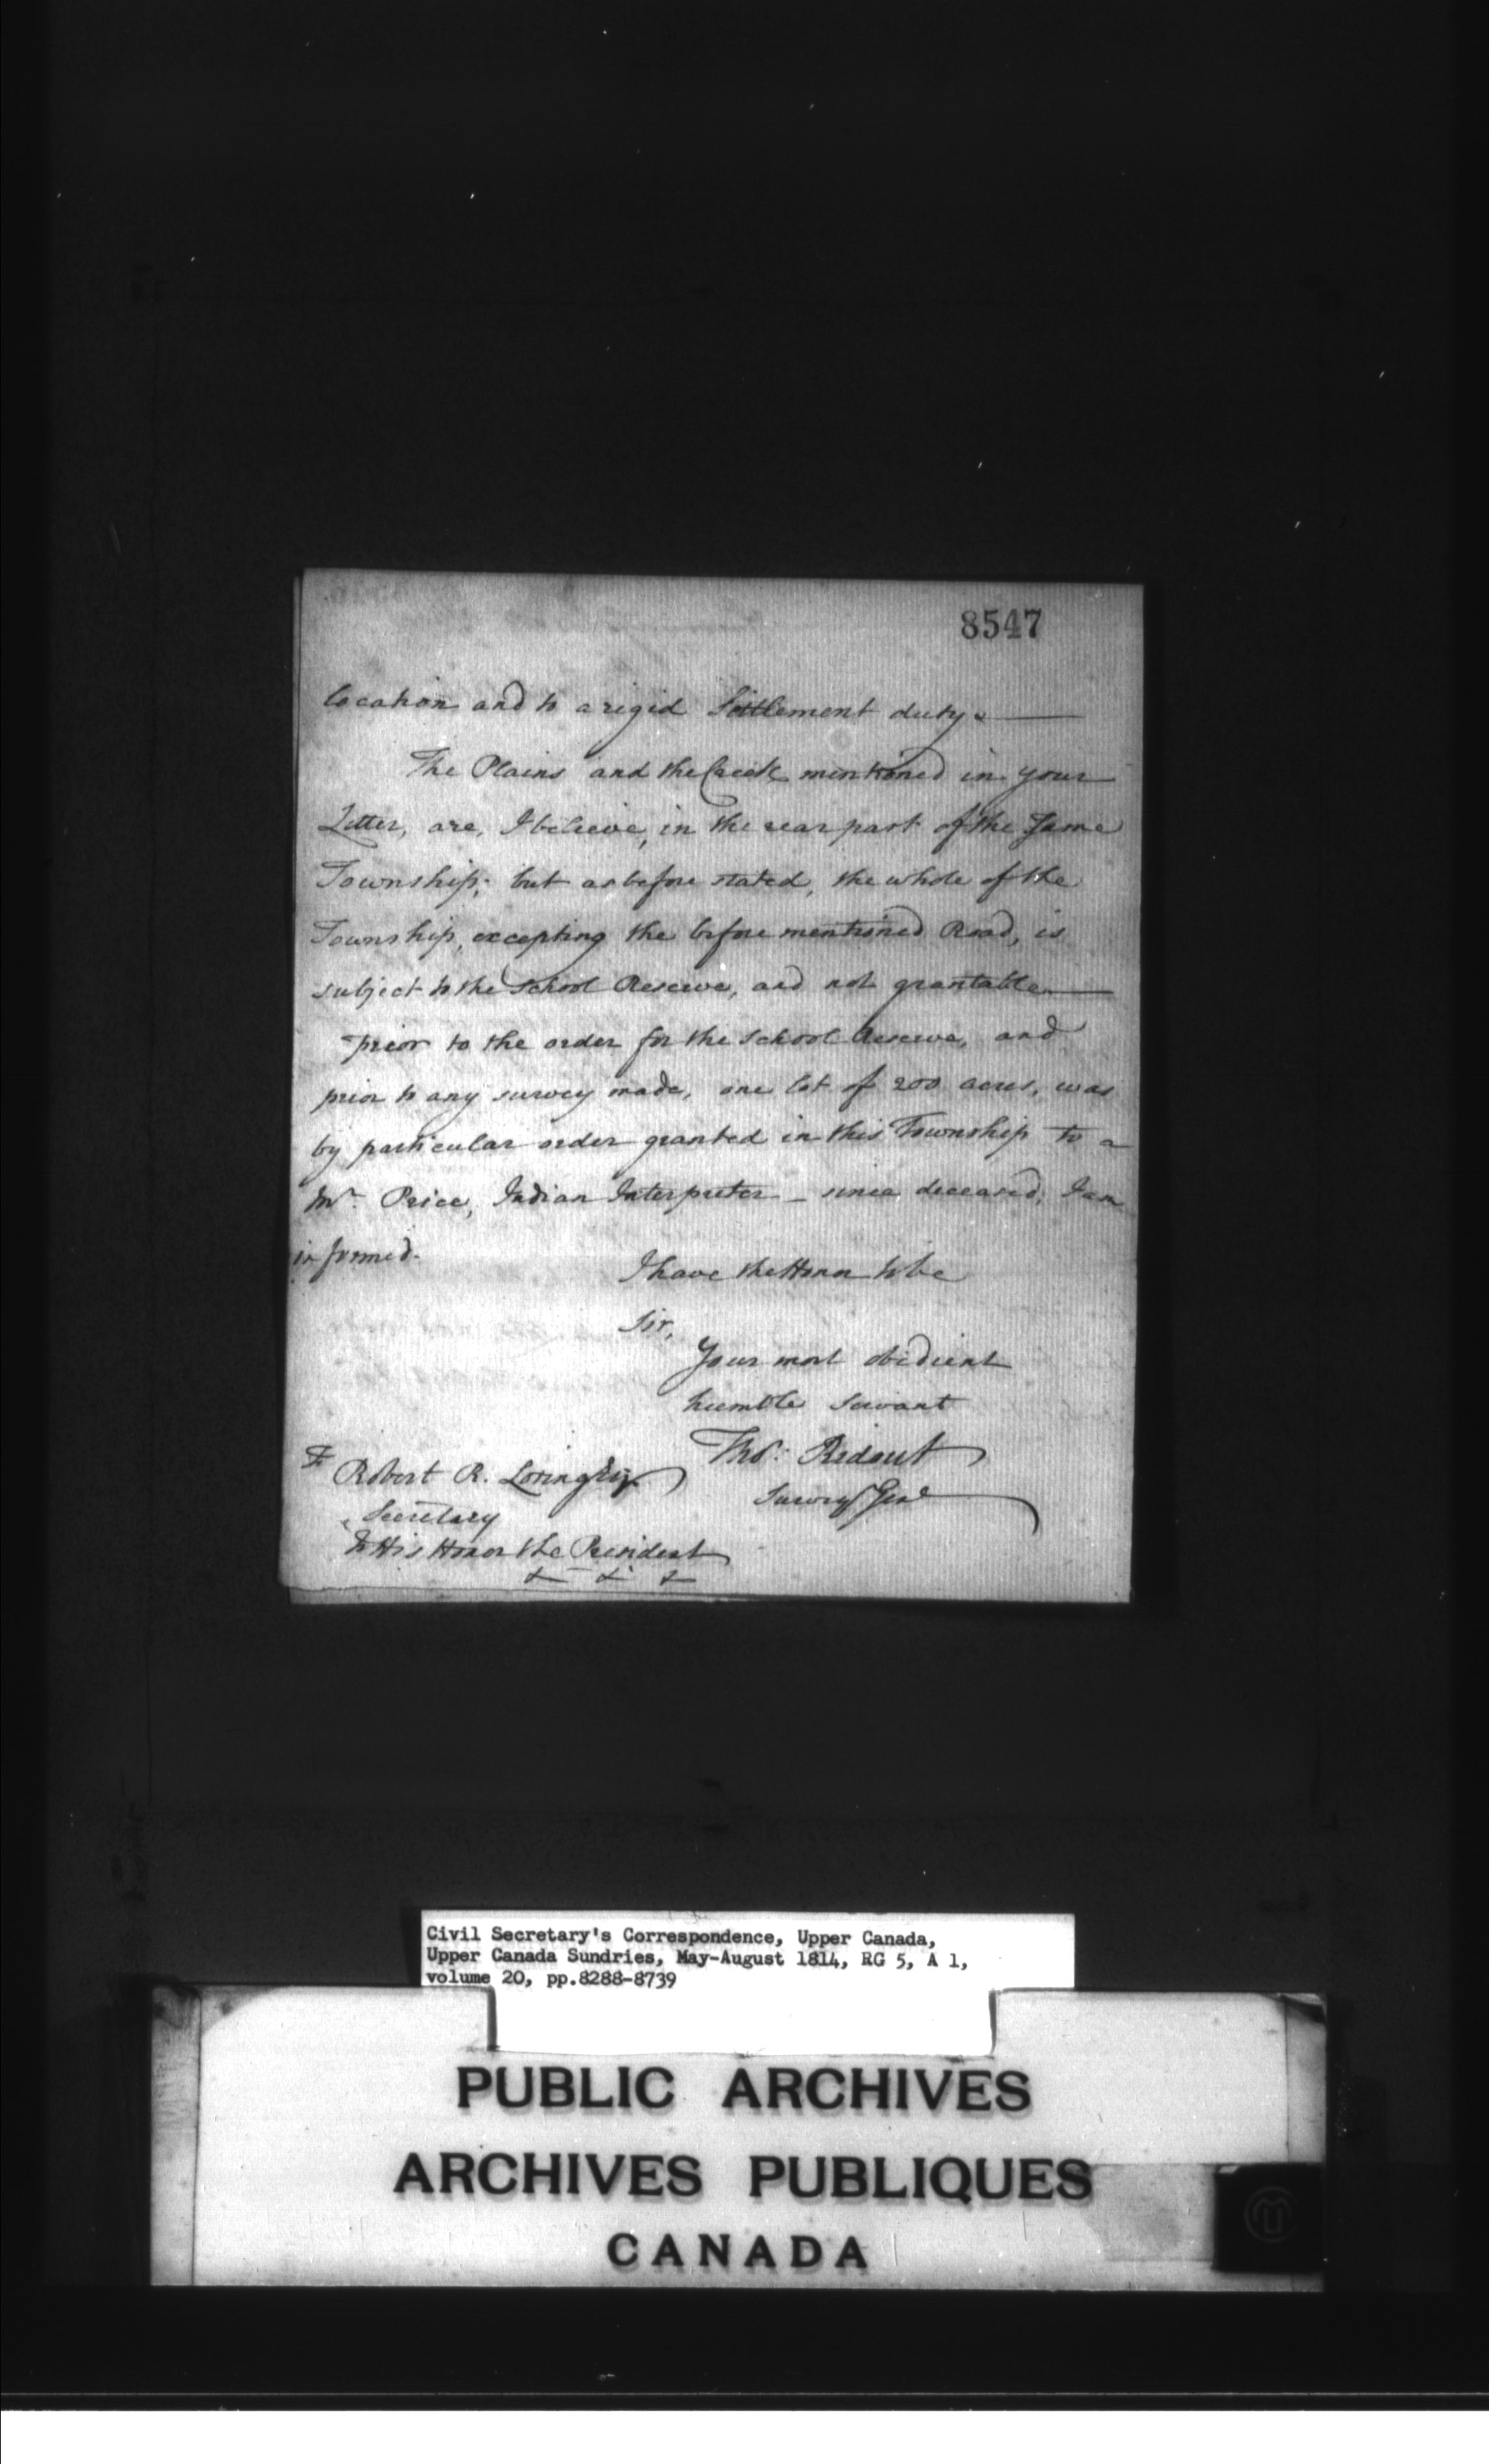 8547
location and to a rigid Settlement duty.
The Plains and the Creek mentioned in your
Letter, are, I believe, in the rear part of the Same
Township; but as before stated, the whole of the
Township, excepting the before mentioned Road, is
subject to the School Reserve, and not grantable.
prior to the order for the School Reserve, and
prior to any survey made, one lot of 200 acres, was
by particular order granted in this Township to a
Mr. Price, Indian Interpreter - since deceased, I am
informed.
I have the Honor to be
Sir,
Your most obedient
humble servant
Thos: Ridout
Survey Genl
Robert R. Loring Esq.
Secretary
To His Honor the President
& & &
Civil Secretary's Correspondence, Upper Canada,
Upper Canada Sundries, May-August 1814, RG 5, A 1,
volume 20, pp.8288-8739
PUBLIC ARCHIVES
ARCHIVES PUBLIQUES
CANADA